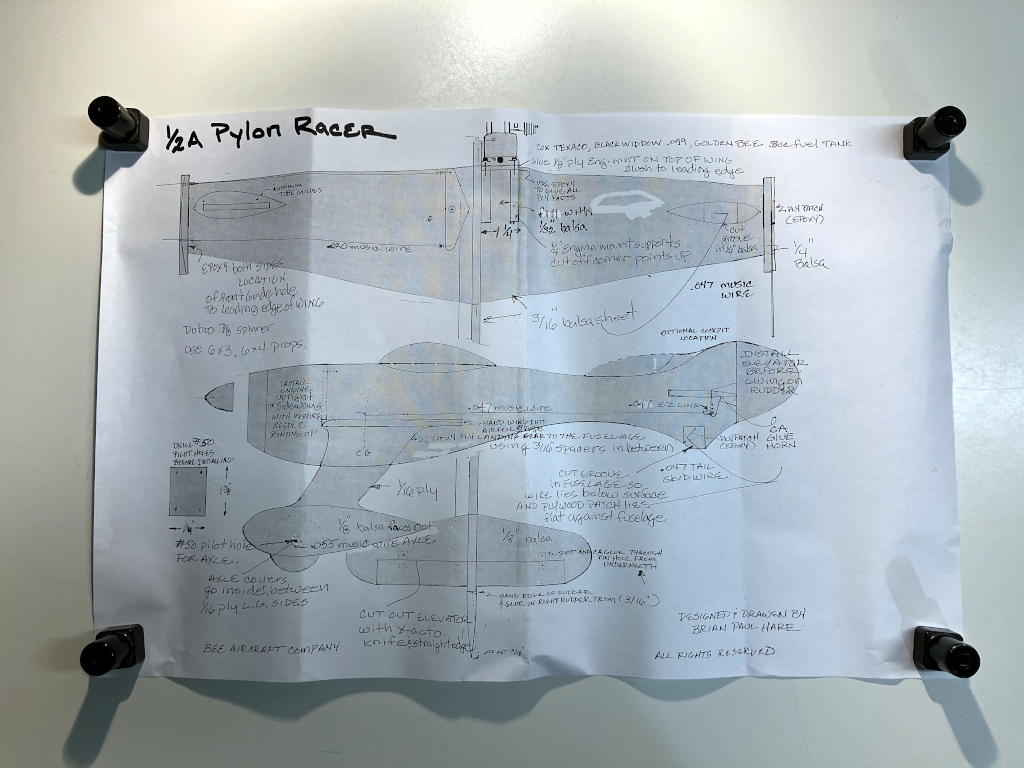 1/2A Pylon Racer
COX TEXACO, BLACK WIDOW .049, GOLDEN BEE 8cc fuel TANK
Glue 1/8" ply Eng. mnt ON TOP OF WING
flush to leading edge
USE EPOXY
TO GLUE ALL
PLY PARTS
ALUMINUM
TUBE GUIDES
with
1/32" balsa
1 1/4"
PLY PATCH
(EPOXY)
CUT
GROOVE
in balsa
1/4"
Balsa
.020 MUSIC WIRE
1/4" Engine mount supports
cut off corner points up
EPOXY both sides
LOCATION
of front Guide hole
TO leading edge of WING
.047 MUSIC
WIRE
3/16" balsa sheet
Dubro 7/8 spinner
USE 6x3, 6x4 PROPS.
OPTIONAL COCKPIT
LOCATION
INSTALL
ELEVATOR
BEFORE
GLUING ON
RUDDER
INSTALL
ENGINE
UPRIGHT
or SIDEWINDER
WITH MIXTURE
NEEDLE
POINTING UP
.047 music wire
SAND WING INTO
AIRFOIL SHAPE
.047 E-Z LINK
CA
GLUE
HORN
EPOXY PLY LANDING GEAR TO THE FUSELAGE
using 3/16" spacers in between
PLY PATCH
(EPOXY)
CG
DRILL #50
PILOT HOLES
BEFORE INSTALLING
.047 TAIL
SKID WIRE
CUT GROOVE
in FUSELAGE SO
WIRE lies below surface
AND PLYWOOD PATCH LIES
flat against fuselage
1/16 ply
1/8 balsa faces out
.055 music wire AXLE
1/8" balsa
#50 pilot hole
FOR AXLE.
SLOTT and CA GLUE THROUGH
PIN HOLE FROM
UNDERNEATH
AXLE covers
go inside, between
1/16 ply L.G. SIDES
SAND EDGE OF RUDDER
& GLUE IN RIGHT RUDDER TRIM (3/16")
CUT OUT ELEVATOR
with X-acto
knife & straight edge
DESIGNED & DRAWN BY
BRIAN PAUL HARE
BEE AIRCRAFT COMPANY
ALL RIGHTS RESERVED.